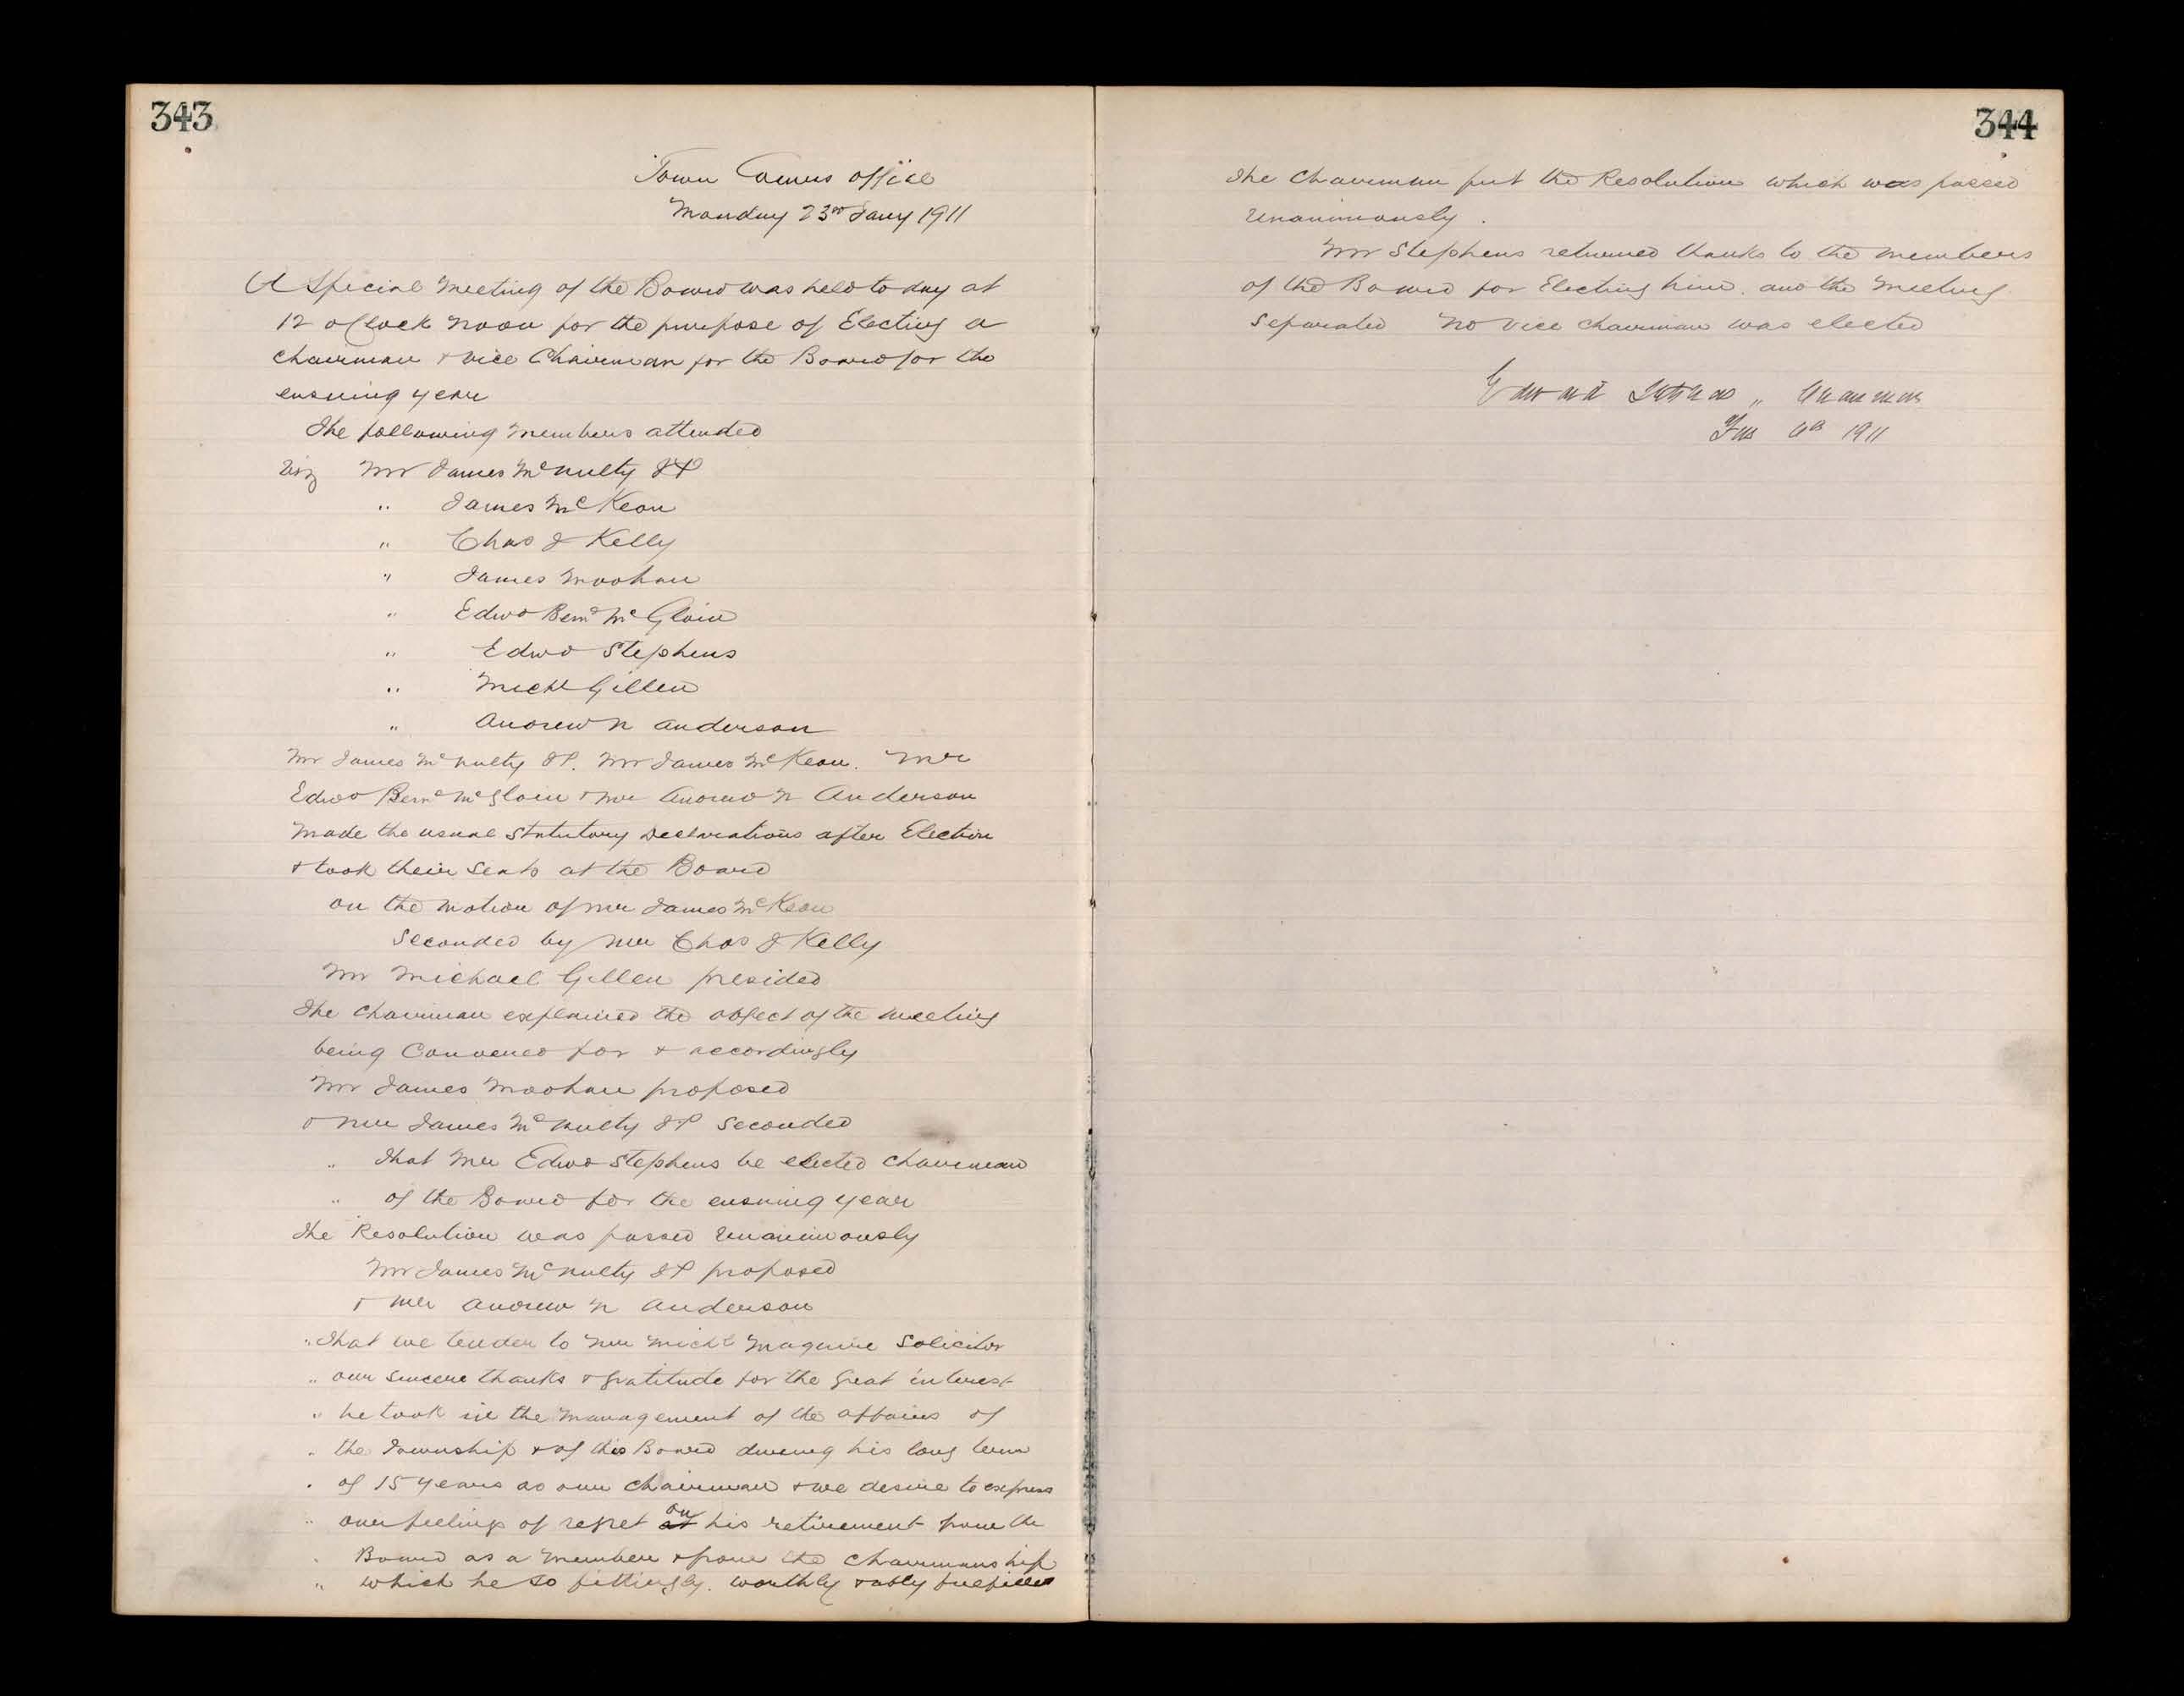 343
Town Comrs office
Monday 23rd Jany 1911
A Special Meeting of the Board was held to day at
12 oClock Noon for the purpose of Electing a
Chairman & Vice Chairman for the Board for the
ensuing year
The following Members attended
Viz Mr James McNulty JP
" James McKeon
" Chas J Kelly
" James Moohan
" Edwd Bernd McGloin
" Edwd Stephens
" Michl Gillen
" Andrew N Anderson
Mr James McNulty JP. Mr James McKeon. Mr
Edwd Bernd McGloin & Mr Andrew N Anderson
Made the usual Statutory Declarations after Election
& took their Seats at the Board
On the Motion of Mr James McKeon
Seconded by Mr Chas J Kelly
Mr Michael Gillen presided
The Chairman explained the object of the Meeting
being Convened for & accordingly
Mr James Moohan proposed
& Mr James McNulty JP Seconded
" That Mr Edwd Stephens be elected Chairman
" of the Board for the ensuing year
The Resolution was passed Unanimously
Mr James McNulty JP proposed
& Mr Andrew N Anderson
" That we tender to Mr Michl Maguire Solicitor
" our Sincere thanks & gratitude for the Great interest
" he took in the Management of the affairs of
" the Township & of this Board during his long term
" of 15 years as our Chairman & we desire to express
" our feelings of regret at on his retirement from the
" Board as a Member & from the Chairmanship
" which he so fittingly. worthly & ably fulfilled
344
The Chairman put the Resolution which was passed
Unanimously.
Mr Stephens returned thanks to the Members
of the Board for Electing him. and the Meeting
Separated No Vice Chairman was elected
Edward Stephens " Chairman
1911